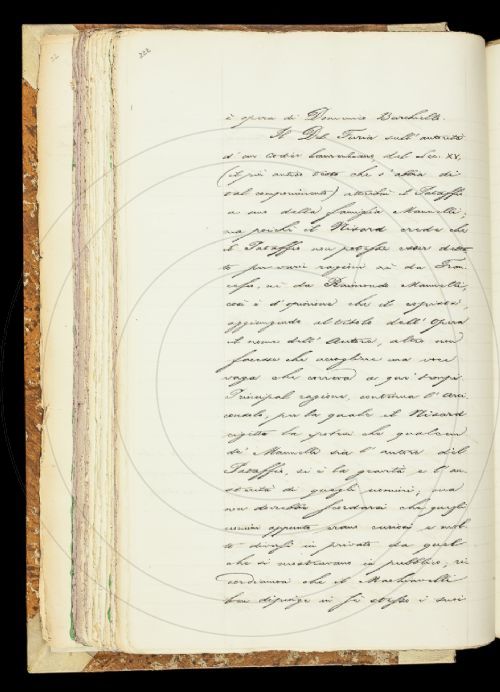 222
è opera di Domenico Burchiello.
Il Del Furia sull'autorità
d'un codice Laurenziano del sec. XV,
(il più antico testo che s'abbia di
tal componimento) attribuì il Pataffio
a uno della famiglia Mannelli;
ma poichè il Nisard crede che
il Pataffio non potesse esser det-
to per varii ragioni nè da Fran-
cesco, nè da Raimondo Mannelli,
così è d'opinione che il copista,
aggiungendo al titolo dell'Opera
il nome dell'Autore, altro non
facesse che accogliere una voce
vaga che correva a que' tempi.
Principal ragione, continua l'Arci
consolo, per la quale il Nisard
rigetta la ipotesi che qualcun
de' Mannelli sia l'autore del
Pataffio, si è la gravità e l'au
sterità di quegli uomini; ma
non dovrebbe scordarsi che quegli
uomini appunto erano curiosi e mol
to diversi in privato da quel
che si mostravano in pubblico; ri
cordiamoci che il Machiavelli
ben dipinge in sè stesso i suoi